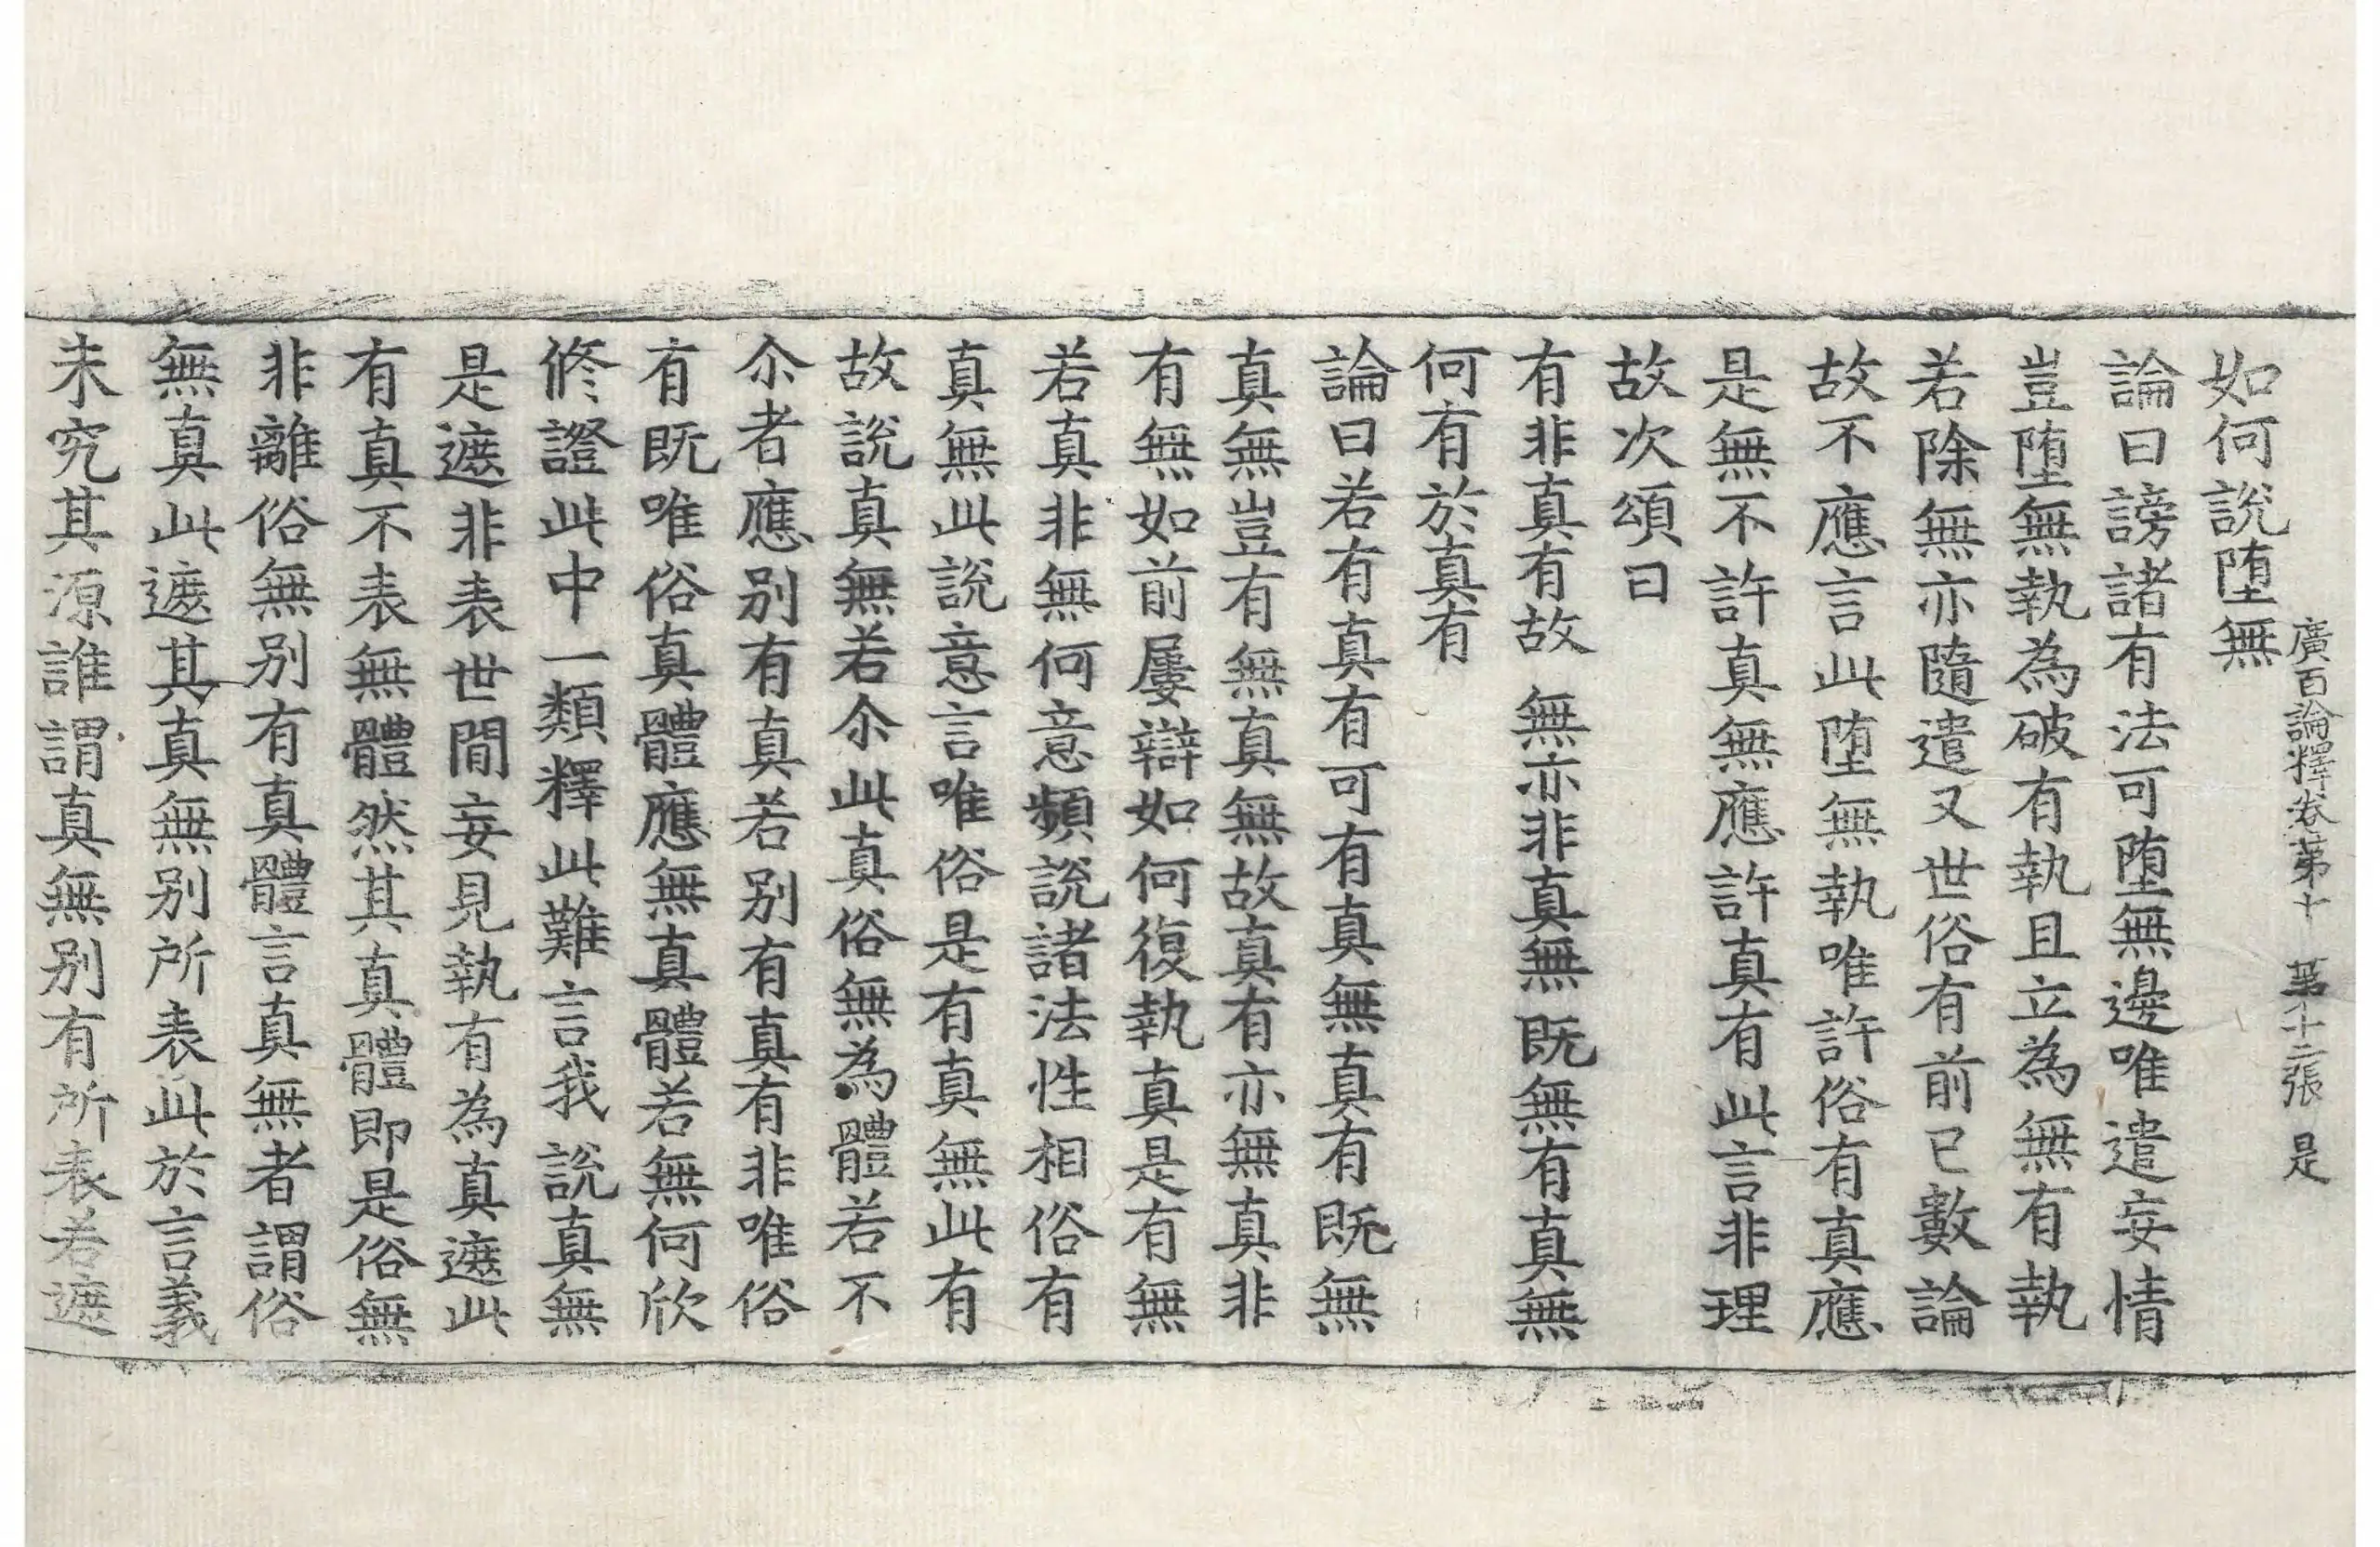 廣百論釋卷第十　第十二張　是
如何說墮無
論曰謗諸有法可墮無邊唯遣妄情
豈墮無執為破有執且立為無有執
若除無亦隨遣又世俗有前已數論
故不應言此墮無執唯許俗有真應
是無不許真無應許真有此言非理
故次頌曰
有非真有故　無亦非真無　既無有真無
何有於真有
論曰若有真有可有真無真有既無
真無豈有無真無故真有亦無真非
有無如前屢辯如何復執真是有無
若真非無何意頻說諸法性相俗有
真無此說意言唯俗是有真無此有
故說真無若尒此真俗無為體若不
尒者應別有真若別有真有非唯俗
有既唯俗真體應無真體若無何欣
修證此中一類釋此難言我說真無
是遮非表世間妄見執有為真遮此
有真不表無體然其真體即是俗無
非離俗無別有真體言真無者謂俗
無真此遮其真無別所表此於言義
未究其源誰謂真無別有所表若遮